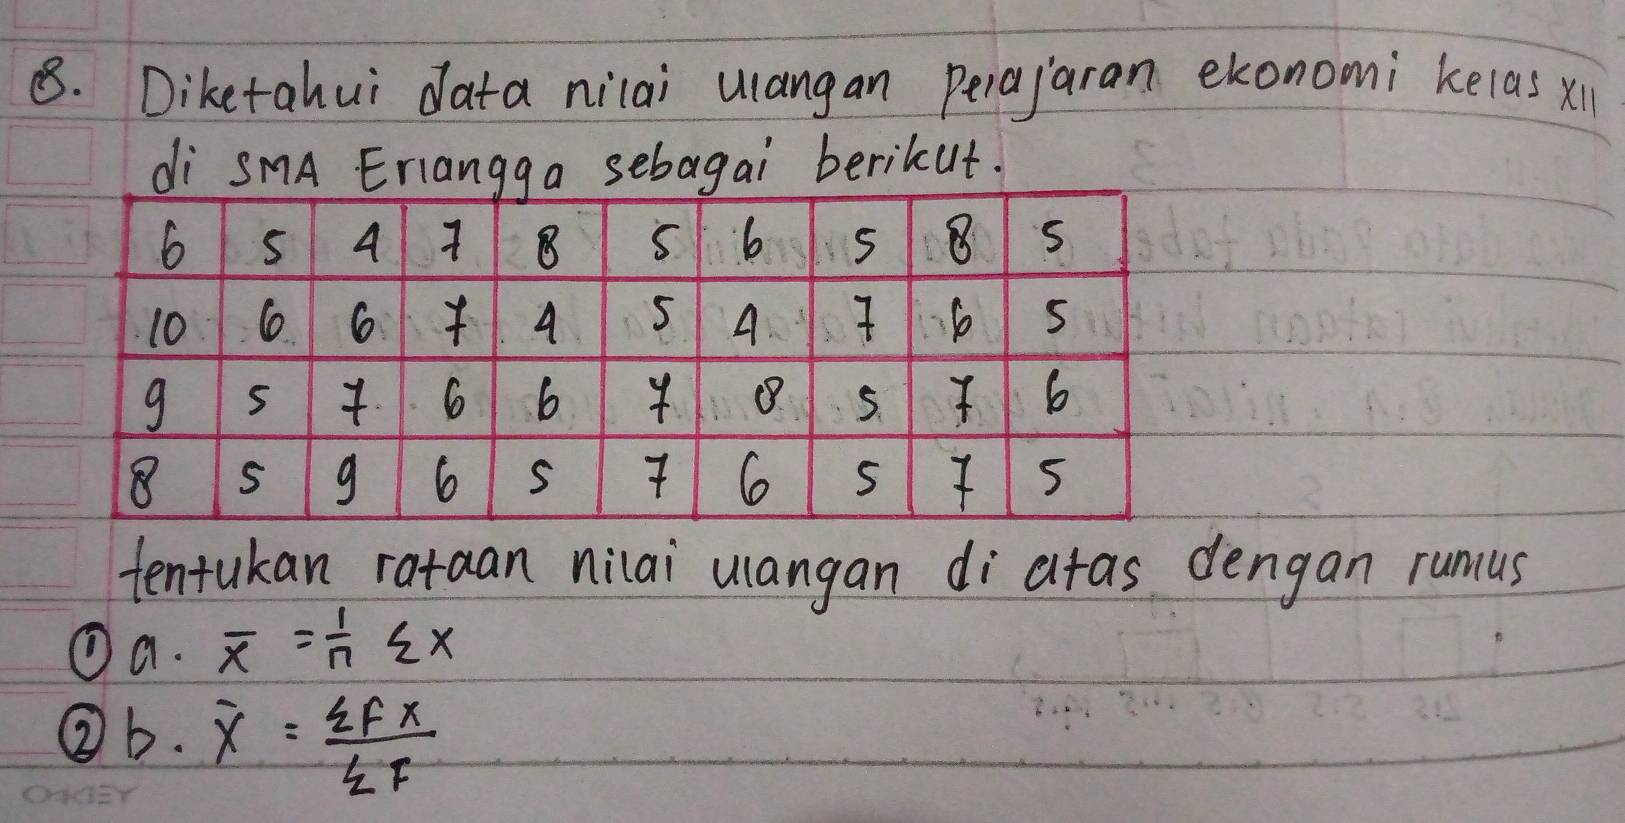 8. Diketahui data nilai ulangan pelajaran ekonomi kelas XII
di SMA Erlangga sebagai berikut.
6 5 4 7 8 5 6 5 8 5
10 6 6 7 4 5 4 7 6 5
9 5 7 6 6 7 8 5 7 6
8 5 9 6 5 7 6 5 7 5
tentukan rataan nilai ulangan di atas dengan rumus
① a. x̄ = 1/n Σx
② b. x̄ = ΣFx/ΣF
OKEY